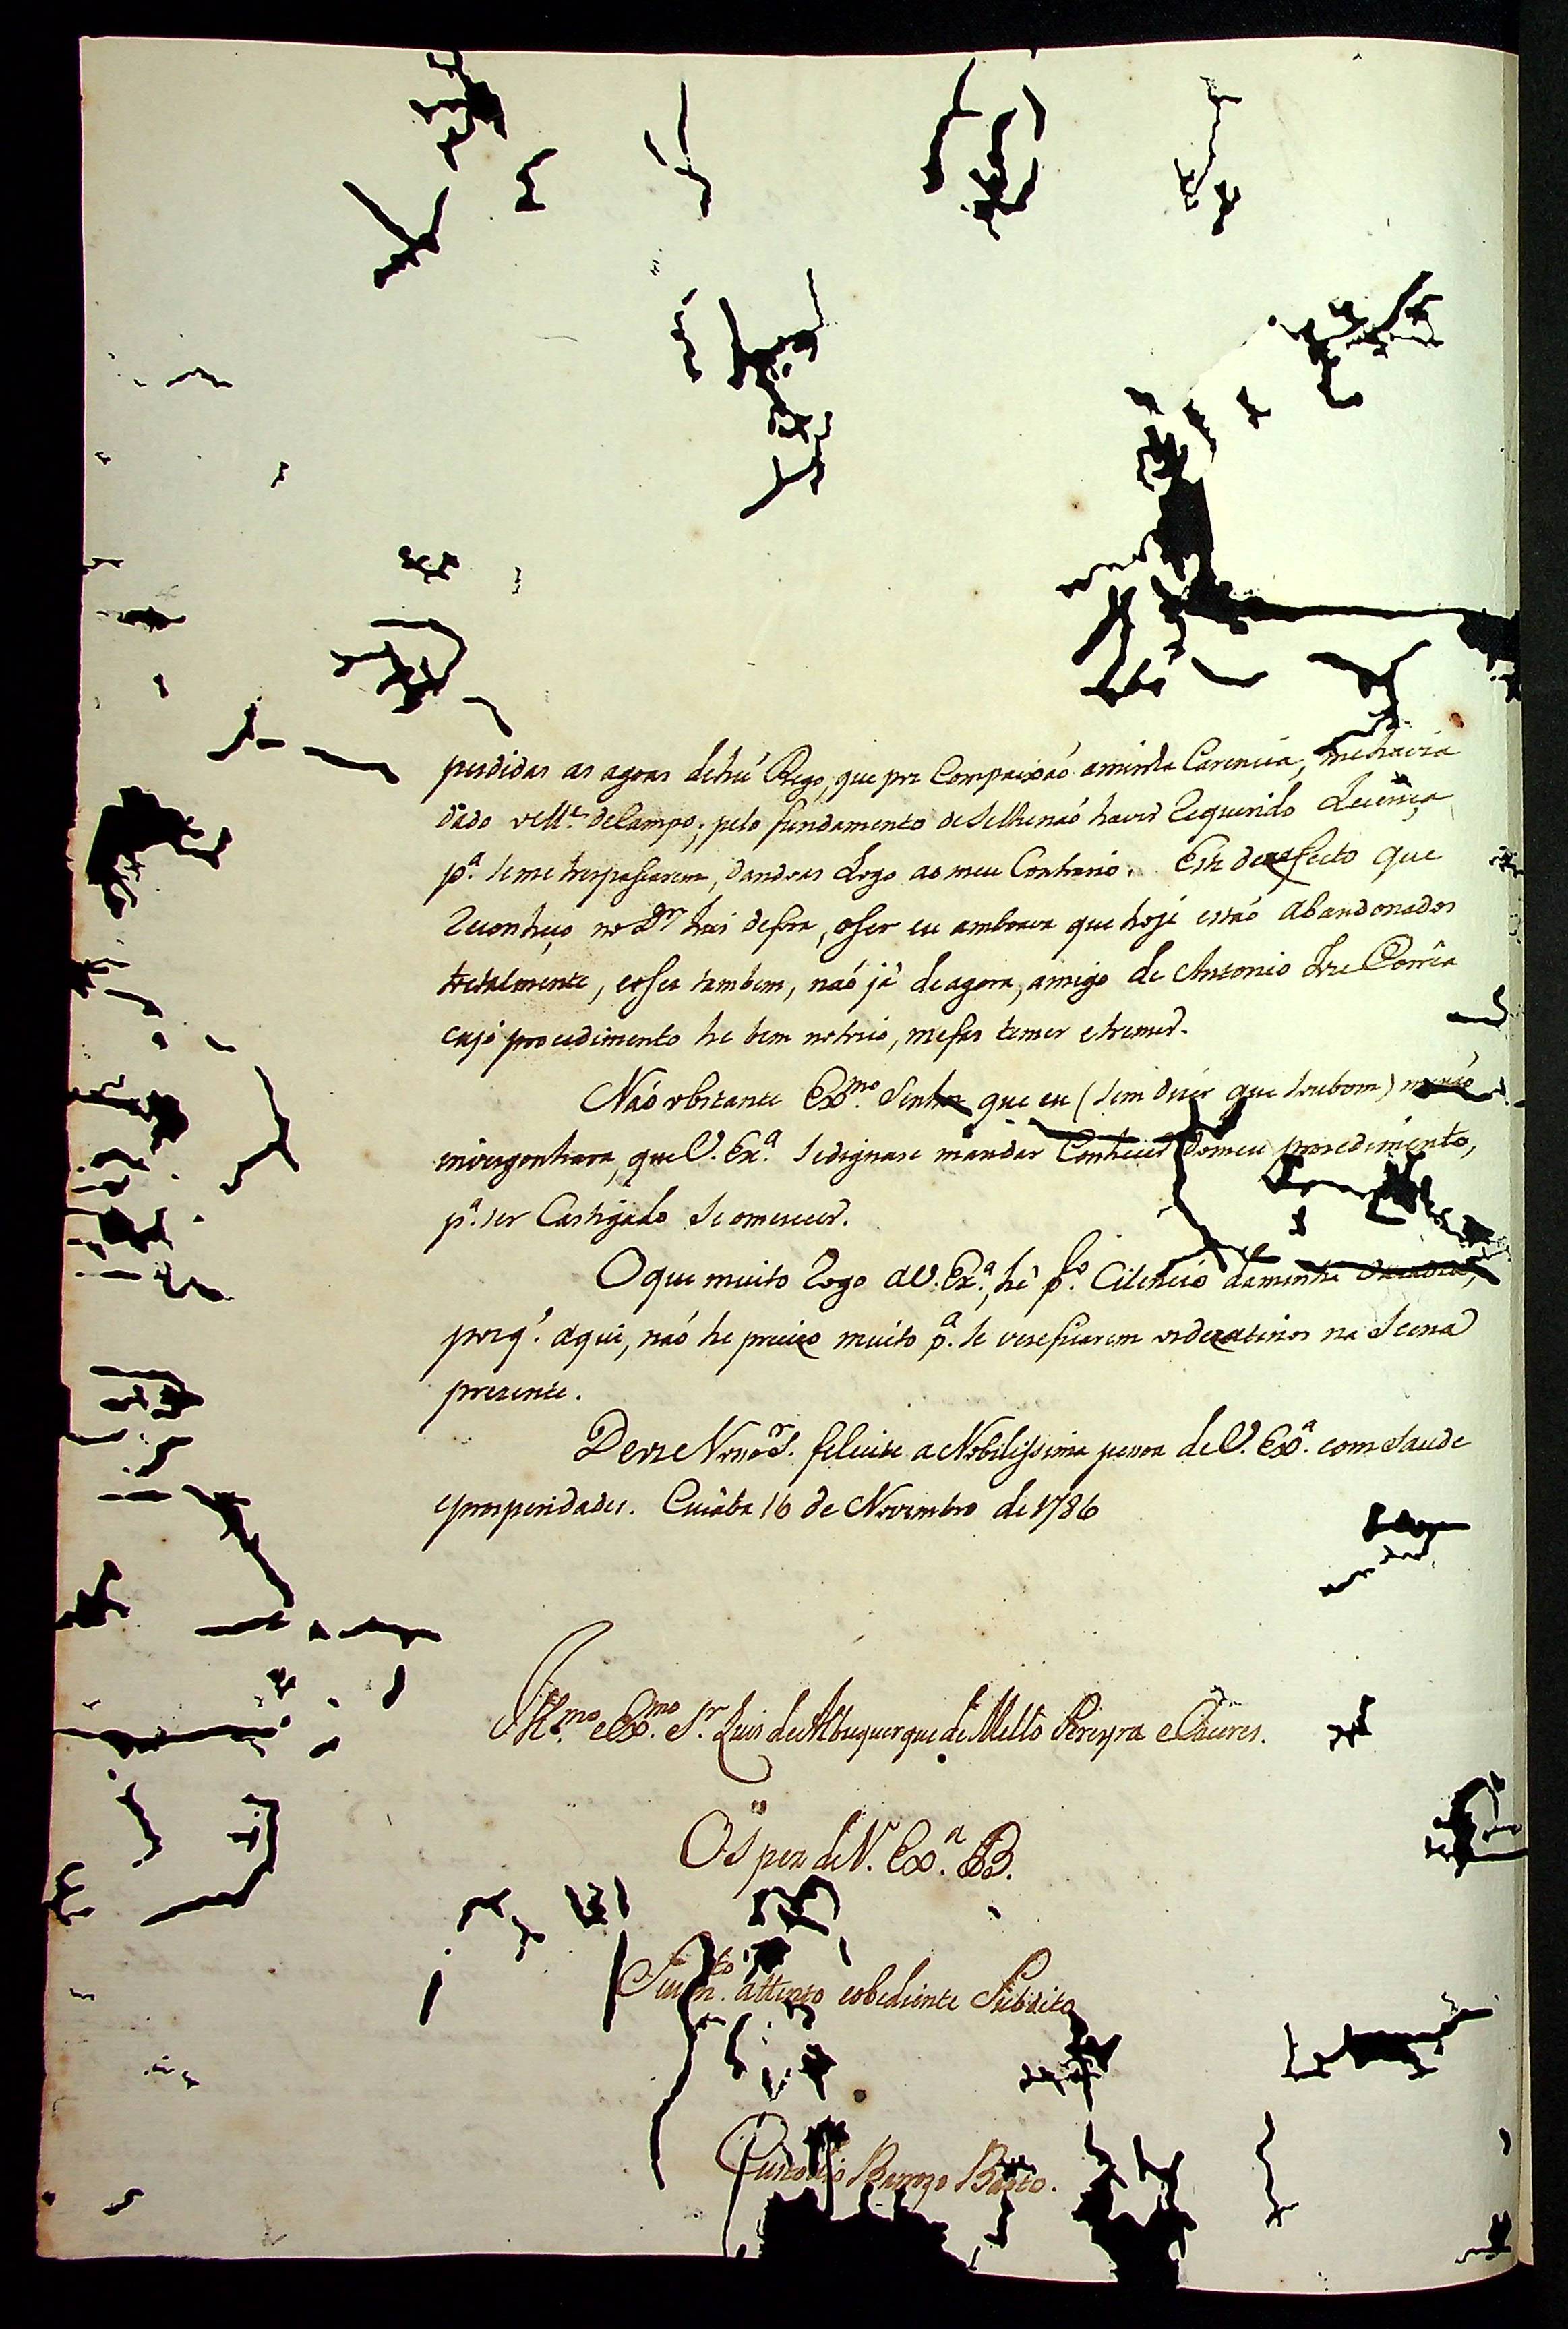 perdidas as agoas dehũ Rego, que por Compaixaó aminha Carencia, mehavia
dado o M.e deCampo; pelo fundamento deSelhenaó haver Requerido Licença
p.ª seme trespassarem, dandoas Logo ao meu Contrario. Este dezafecto que
Reconheço no D.or Juis defora, oser eu
totalmente, eoser tambem, naó já deagora, amigo de Antonio Corrêa
cujo procedimento he bem notorio, mefas temer etremer.
Naó obstante Ex.mo Senhor que eu (sem dizer que soubom)
envergonhara, que V. Ex.ª sedignase mandar Conhecer domeu procedimento,
p.ª ser Castigado seomerecer.
Oque muito Rogo aV. Ex.ª, hé o Cilencio daminha
porq.' aqui, naó he precizo muito p.ª se verefiearem os dezatinos na Scena
prezente.
Deos Nosso S.r felicite aNobilissima pessoa deV. Ex.ª com saude
eprosperidades. Cuiaba 16 de Novembro de 1786
Ill.mo e Ex.mo S.r Luis deAlbuquerque deMello Pereyra eCáceres.
Os pez deV. Ex.ª B.
Seu m.to attento eobediente Subdito
Custodio Barrozo Basto.